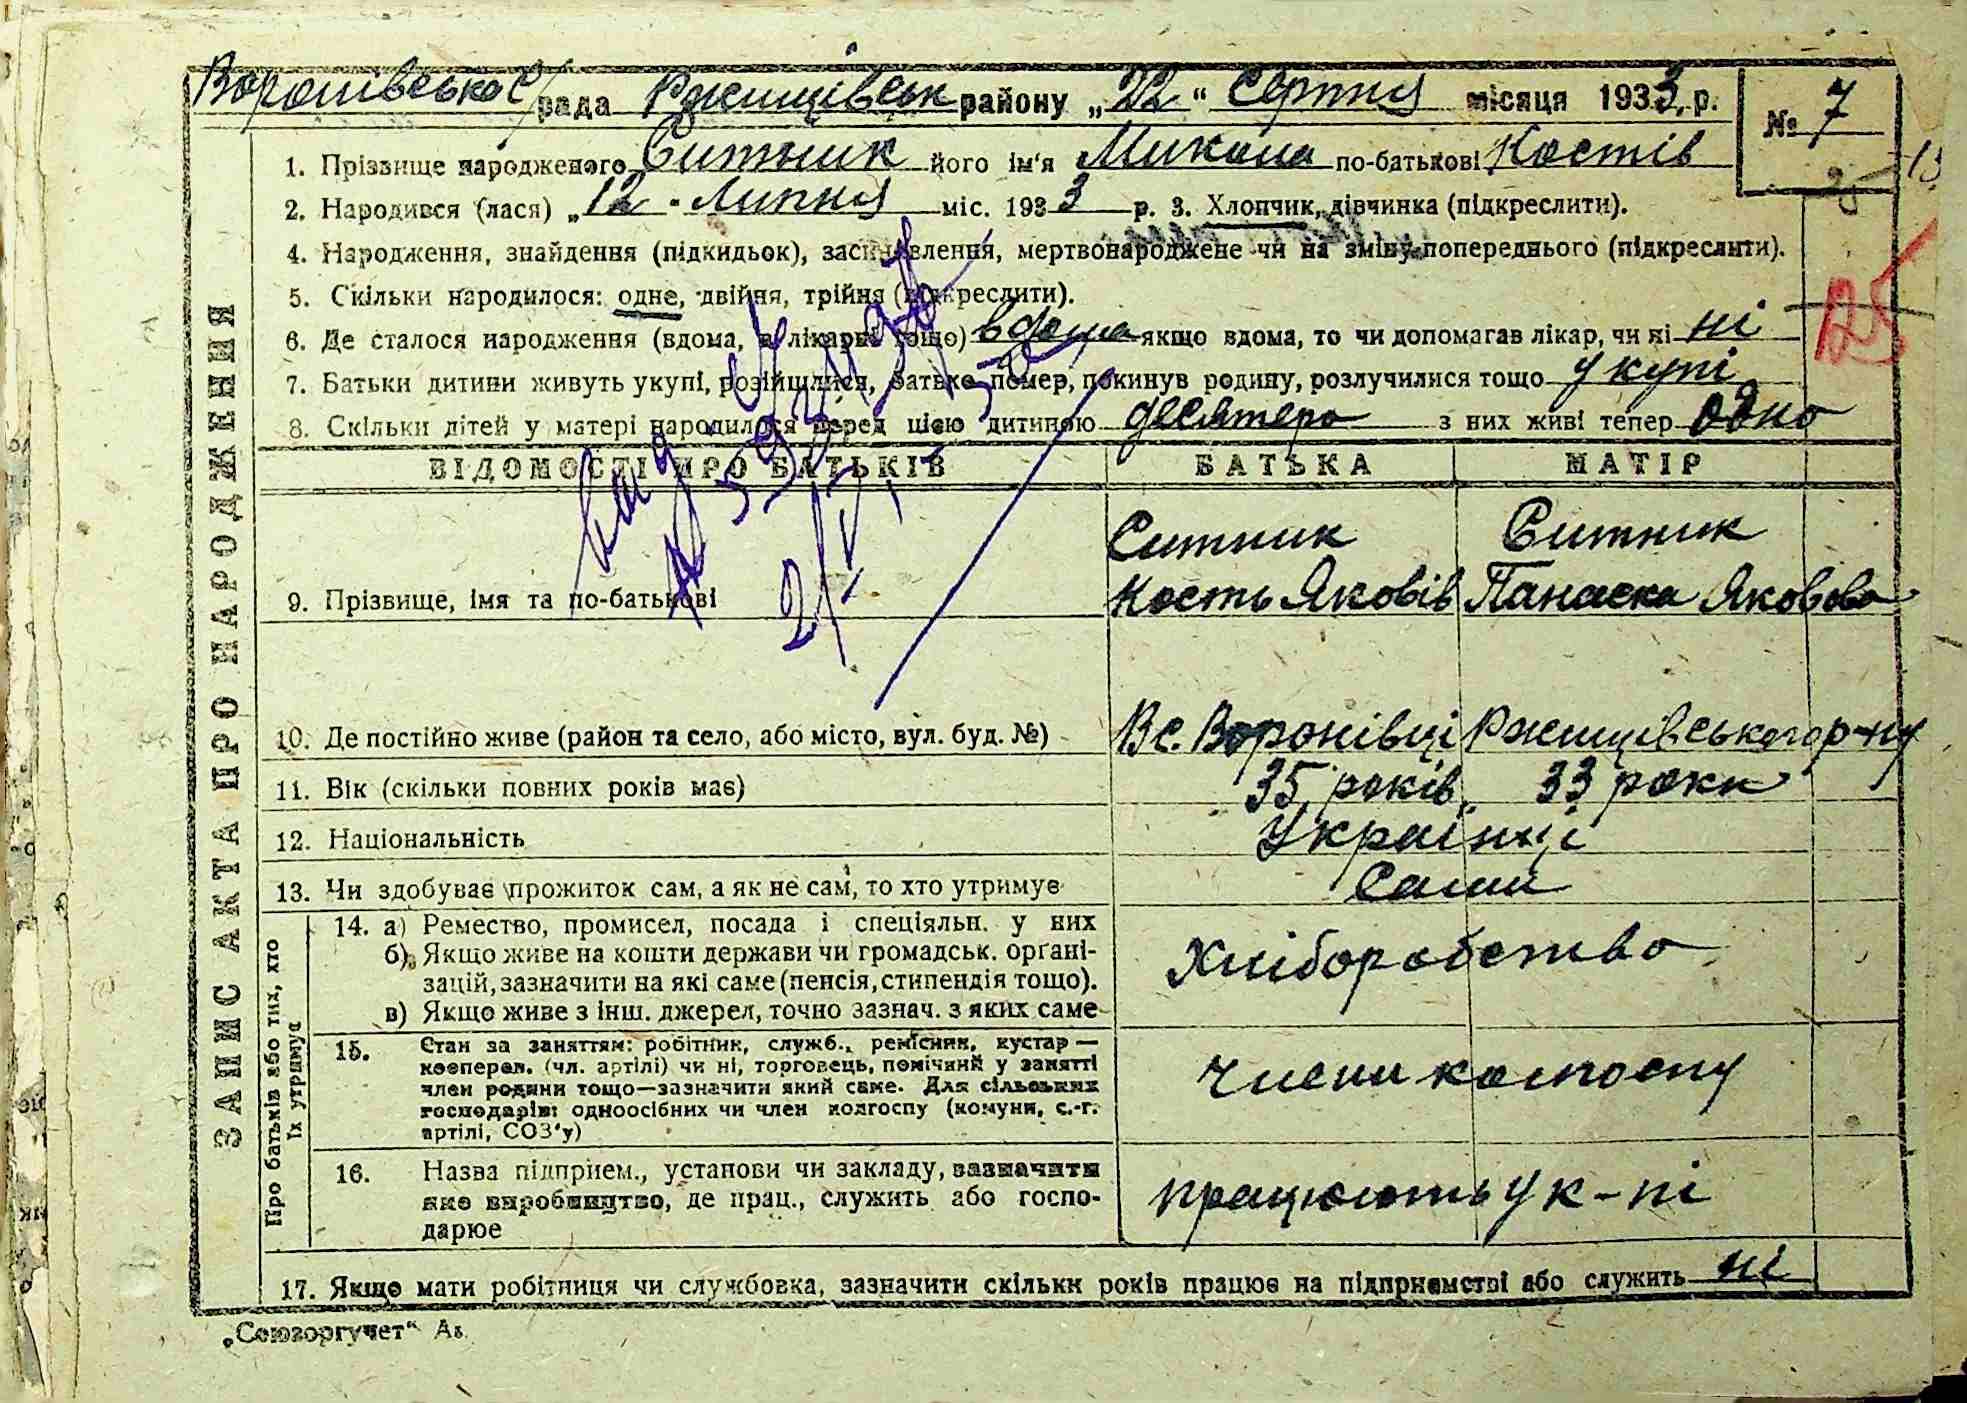 Воронівська С/рада Ржищівськ району „22“ Серпня місяця 1933 р. № 7
1. Прізвище народженого Ситник його ім'я Микола по-батькові Костів
2. Народився (лася) „12 Липня міс. 1933 р. 3. Хлопчик, дівчинка (підкреслити).
4. Народження, знайдення (підкидьок), засиновлення, мертвонароджене чи на зміну попереднього (підкреслити).
5. Скільки народилося: одне, двійня, трійня (підкреслити).
25
6. Де сталося народження (вдома, в лікарні тощо) вдома якщо вдома, то чи допомагав лікар, чи ні ні
7. Батьки дитини живуть укупі, розійшлися, батько помер, покинув родину, розлучилися тощо укупі
8. Скільки дітей у матері народилося перед цією дитиною десятеро з них живі тепер одно
ВІДОМОСТІ ПРО БАТЬКІВ БАТЬКА МАТІР
Ситник Ситник
9. Прізвище, імя та по-батькові Кость Яковів Панаска Яковова
10. Де постійно живе (район та село, або місто, вул. буд. №) В с. Воронівці Ржищівського р-ну
11. Вік (скільки повних років має) 35 років 33 роки
12. Національність Українці
13. Чи здобуває прожиток сам, а як не сам, то хто утримує Сами
ЗАПИС АКТА ПРО НАРОДЖЕННЯ
Про батьків або тих, хто їх утримує
14. а) Ремество, промисел, посада і спеціяльн. у них
б) Якщо живе на кошти держави чи громадськ. органі-
зацій, зазначити на які саме (пенсія, стипендія тощо).
в) Якщо живе з інш. джерел, точно зазнач. з яких саме
Хліборобство
15. Стан за заняттям: робітник, служб., ремісник, кустар —
кооперов. (чл. артілі) чи ні, торговець, помічний у занятті
член родини тощо—зазначити який саме. Для сільських
господарів: одноосібних чи член колгоспу (комуни, с.-г.
артілі, СОЗ'у)
Члени колгоспу
16. Назва підприєм., установи чи закладу, зазначити
яке виробництво, де прац., служить або госпо-
дарює
працюють у к-пі
17. Якщо мати робітниця чи службовка, зазначити скільки років працює на підприємстві або служить ні
„Союзоргучет“